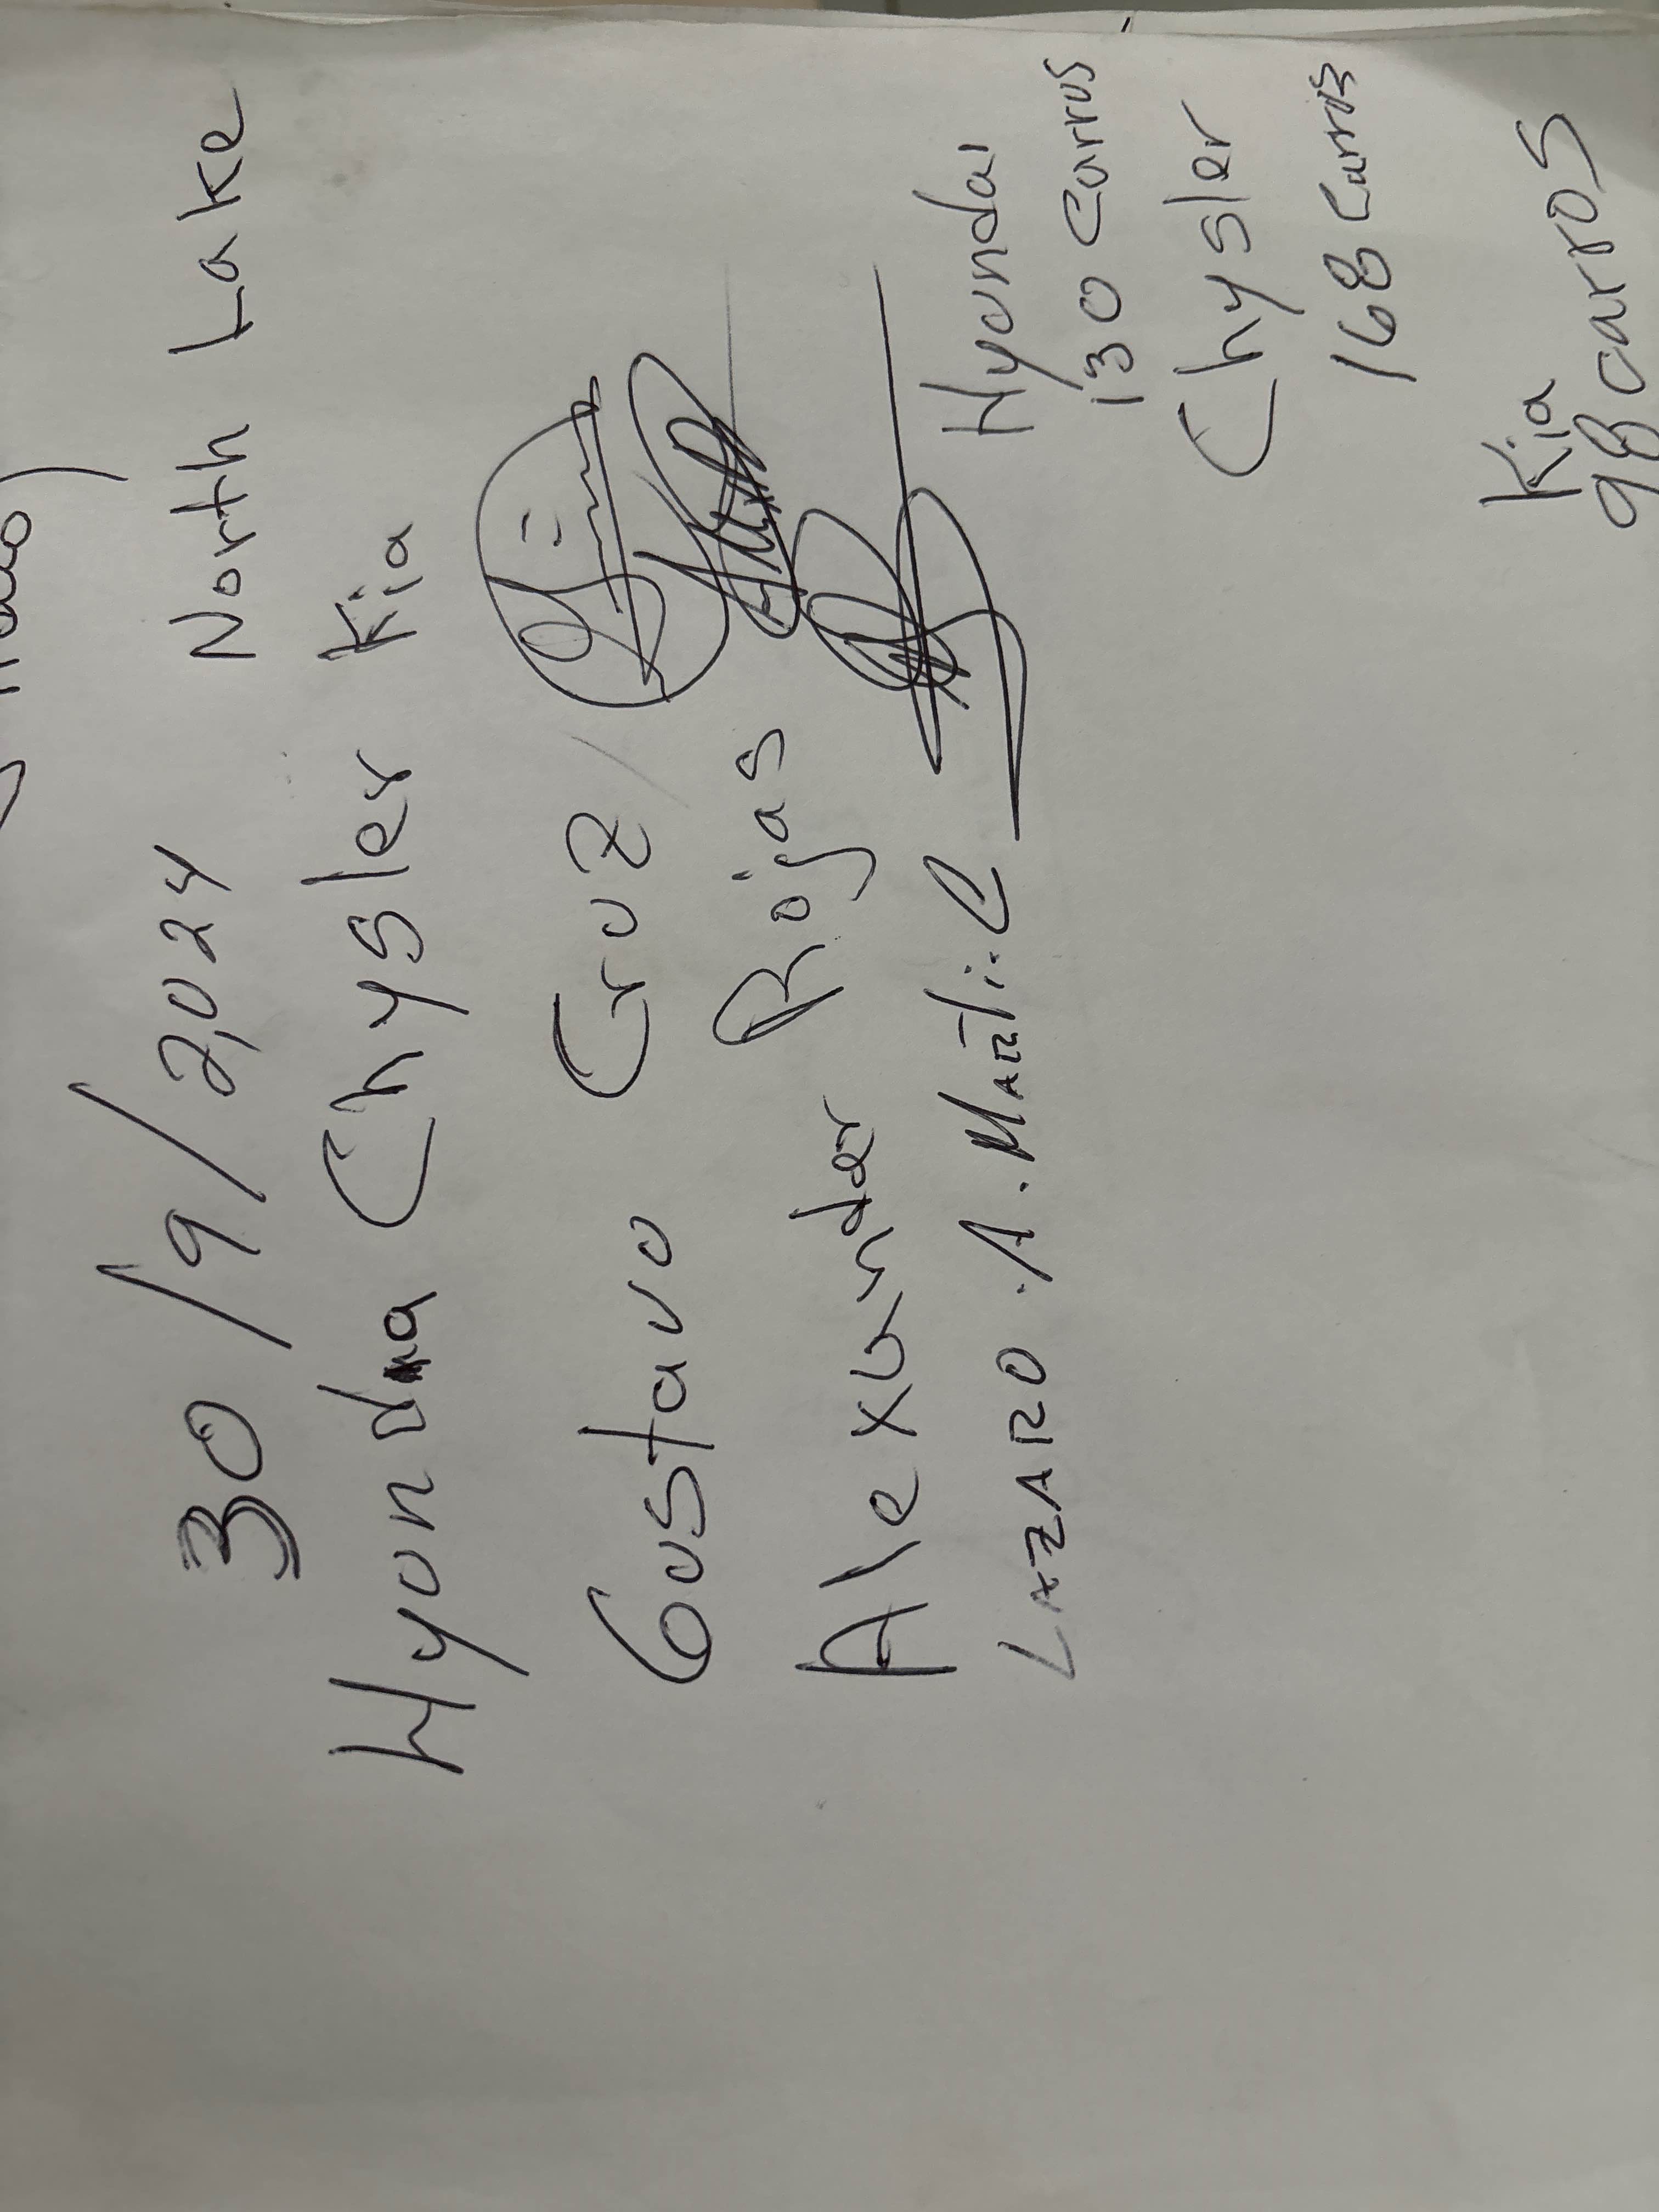 30/9/2,024 North Lake
Hyonda Chysler Kia
Gustavo Cruz
Alexander Rojas
LAZARO . A. MARTI. C
Hyondai
130 Carros
Chysler
168 Carros
Kia
98 carros